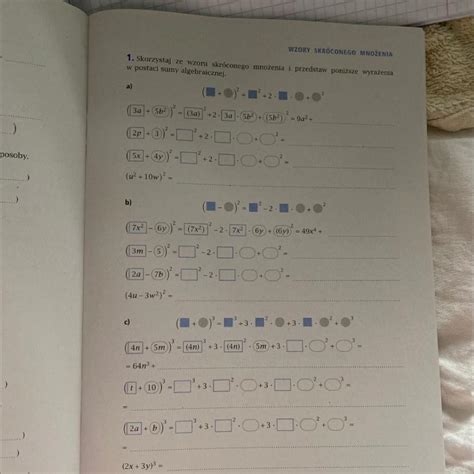 WZORY SKRÓCONEGO MNOŻENIA
1. Skorzystaj ze wzoru skróconego mnożenia i przedstaw poniższe wyrażenia
w postaci sumy algebraicznej.
a)
(■ + ●)² = ■² + 2 · ■ · ● + ●²
(3a + 5b²)² = (3a)² + 2 · 3a · 5b² + (5b²)² = 9a² +
(2p + 3)² = □² + 2 · □ · ○ + ○² =
posoby.
(5x + 4y)² = □² + 2 · □ · ○ + ○² =
(u² + 10w)² =
b)
(■ − ●)² = ■² − 2 · ■ · ● + ●²
(7x² − 6y)² = (7x²)² − 2 · 7x² · 6y + (6y)² = 49x⁴ +
(3m − 5)² = □² − 2 · □ · ○ + ○² =
(2a − 7b)² = □² − 2 · □ · ○ + ○² =
(4u − 3w²)² =
c)
(■ + ●)³ = ■³ + 3 · ■² · ● + 3 · ■ · ●² + ●³
(4n + 5m)³ = (4n)³ + 3 · (4n)² · 5m + 3 · □ · ○² + ○³ =
= 64n³ +
(t + 10)³ = □³ + 3 · □² · ○ + 3 · □ · ○² + ○³ =
=
(2a + b)³ = □³ + 3 · □² · ○ + 3 · □ · ○² + ○³ =
=
(2x + 3y)³ =